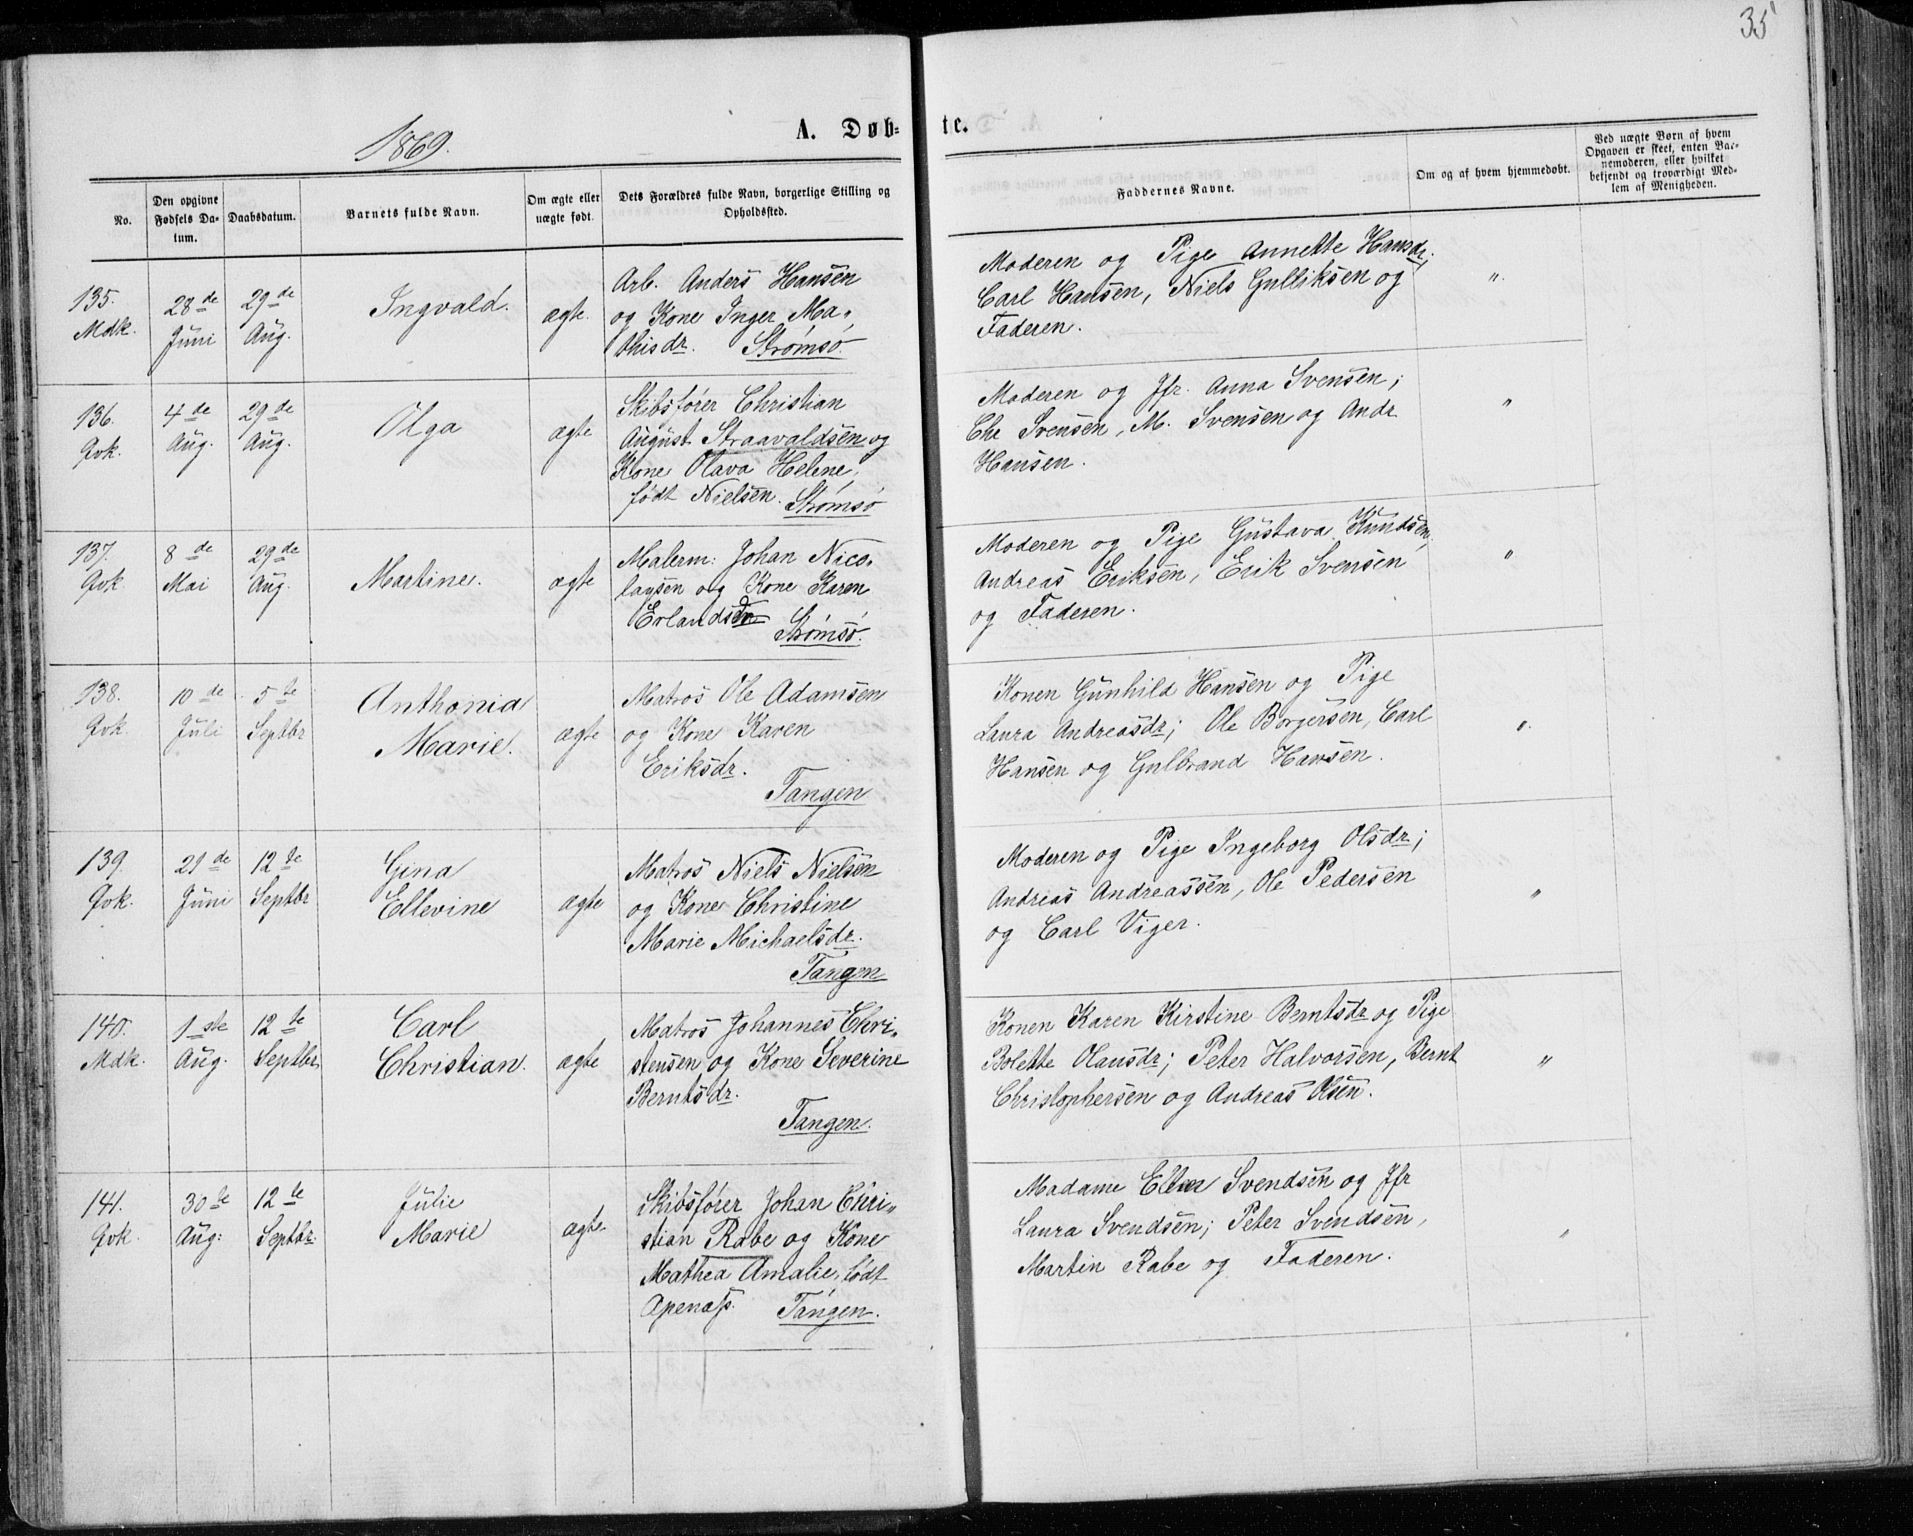 35
1869.
A. Døb-
te.
No.
Den opgivne Fødsels Da-tum.
Daabsdatum.
Barnets fulde Navn.
Om ægte eller uægte født.
Dets Forældres fulde Navn, borgerlige Stilling og Opholdssted.
Faddernes Navne.
Om og af hvem hjemmedøbt.
Ved uægte Børn af hvem Opgaven er skeet, enten Bar-nemoderen, eller hvilket bekjendt og troværdigt Med-lem af Menigheden.
135. Mdk.
28de Juni
29de Aug.
Ingvald.
ægte.
Arb. Anders Hansen
og Kone Inger Ma„
thisdr. Strømsø.
Moderen og Pige Annette Hansdr,
Carl Hansen, Niels Gulliksen og
Faderen.
"
136. Qvk.
4de Aug.
29de Aug.
Olga
ægte
Skibsfører Christian
August Straavaldsen og
Kone Olava Helene,
født Nielsen. Strømsø
Moderen og Jfr. Anna Svensen;
Chr Svensen, M. Svensen og Andr.
Hansen.
"
137. Qvk
8de Mai
29de Aug.
Martine.
ægte
Malerm: Johan Nico„
laysen og Kone Karen
Erlandsdr Strømsø.
Moderen og Pige Gustava Knudsen,
Andreas Eriksen, Erik Svensen
og Faderen.
"
138. Qvk.
10de Juli
5te Septbr
Anthonia
Marie.
ægte
Matros Ole Adamsen
og Kone Karen
Eriksdr.
Tangen
Konen Gunhild Hansen og Pige
Laura Andreasdr; Ole Borgersen, Carl
Hansen og Gulbrand Hansen.
"
139. Qvk.
21de Juni
12te Septbr
Gina
Ellevine
ægte
Matros Niels Nielsen
og Kone Christine
Marie Michaelsdr.
Tangen
Moderen og Pige Ingeborg Olsdr;
Andreas Andreassen, Ole Pedersen
og Carl Viger.
"
140. Mdk.
1ste Aug.
12te Septbr
Carl
Christian.
ægte
Matros Johannes Chri„
stensen og Kone Severine
Berntsdr.
Tangen.
Konen Karen Kirstine Berntsdr og Pige
Bolette Olausdr; Peter Halvorsen, Bernt
Christophersen og Andreas Olsen.
"
141. Qvk.
30te Aug:
12te Septbr.
Julie
Marie
ægte
Skibsfører Johan Chri„
stian Rabe og Kone
Mathea Amalie, født
Apenæss. Tangen.
Madame Ellen Svendsen og Jfr
Laura Svendsen; Peter Svendsen,
Martin Rabe og Faderen.
"